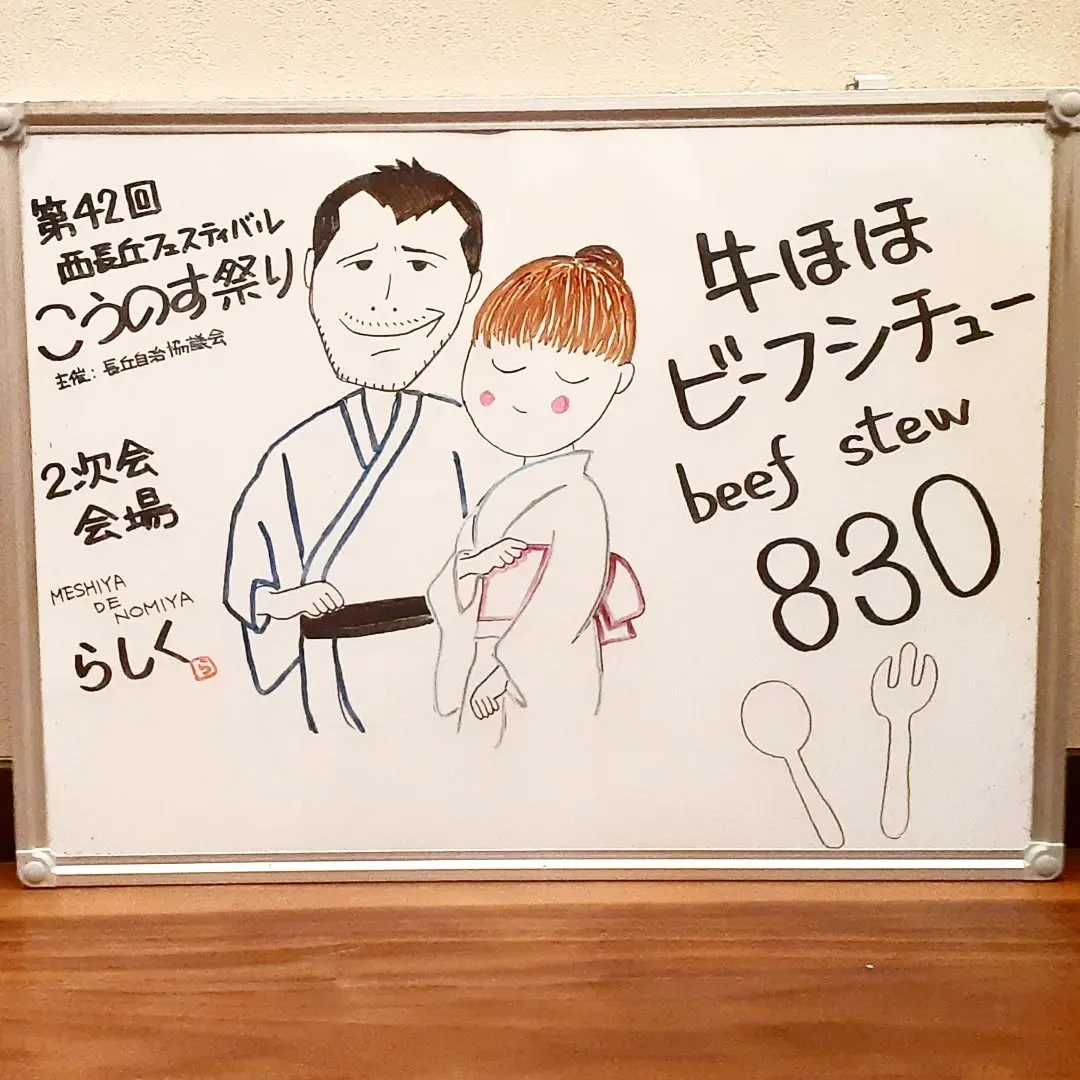 第42回
西長丘フェスティバル
こうのす祭り
主催：長丘自治協議会
2次会
会場
MESHIYA
DE
NOMIYA
らしく
ら
牛ほほ
ビーフシチュー
beef stew
830